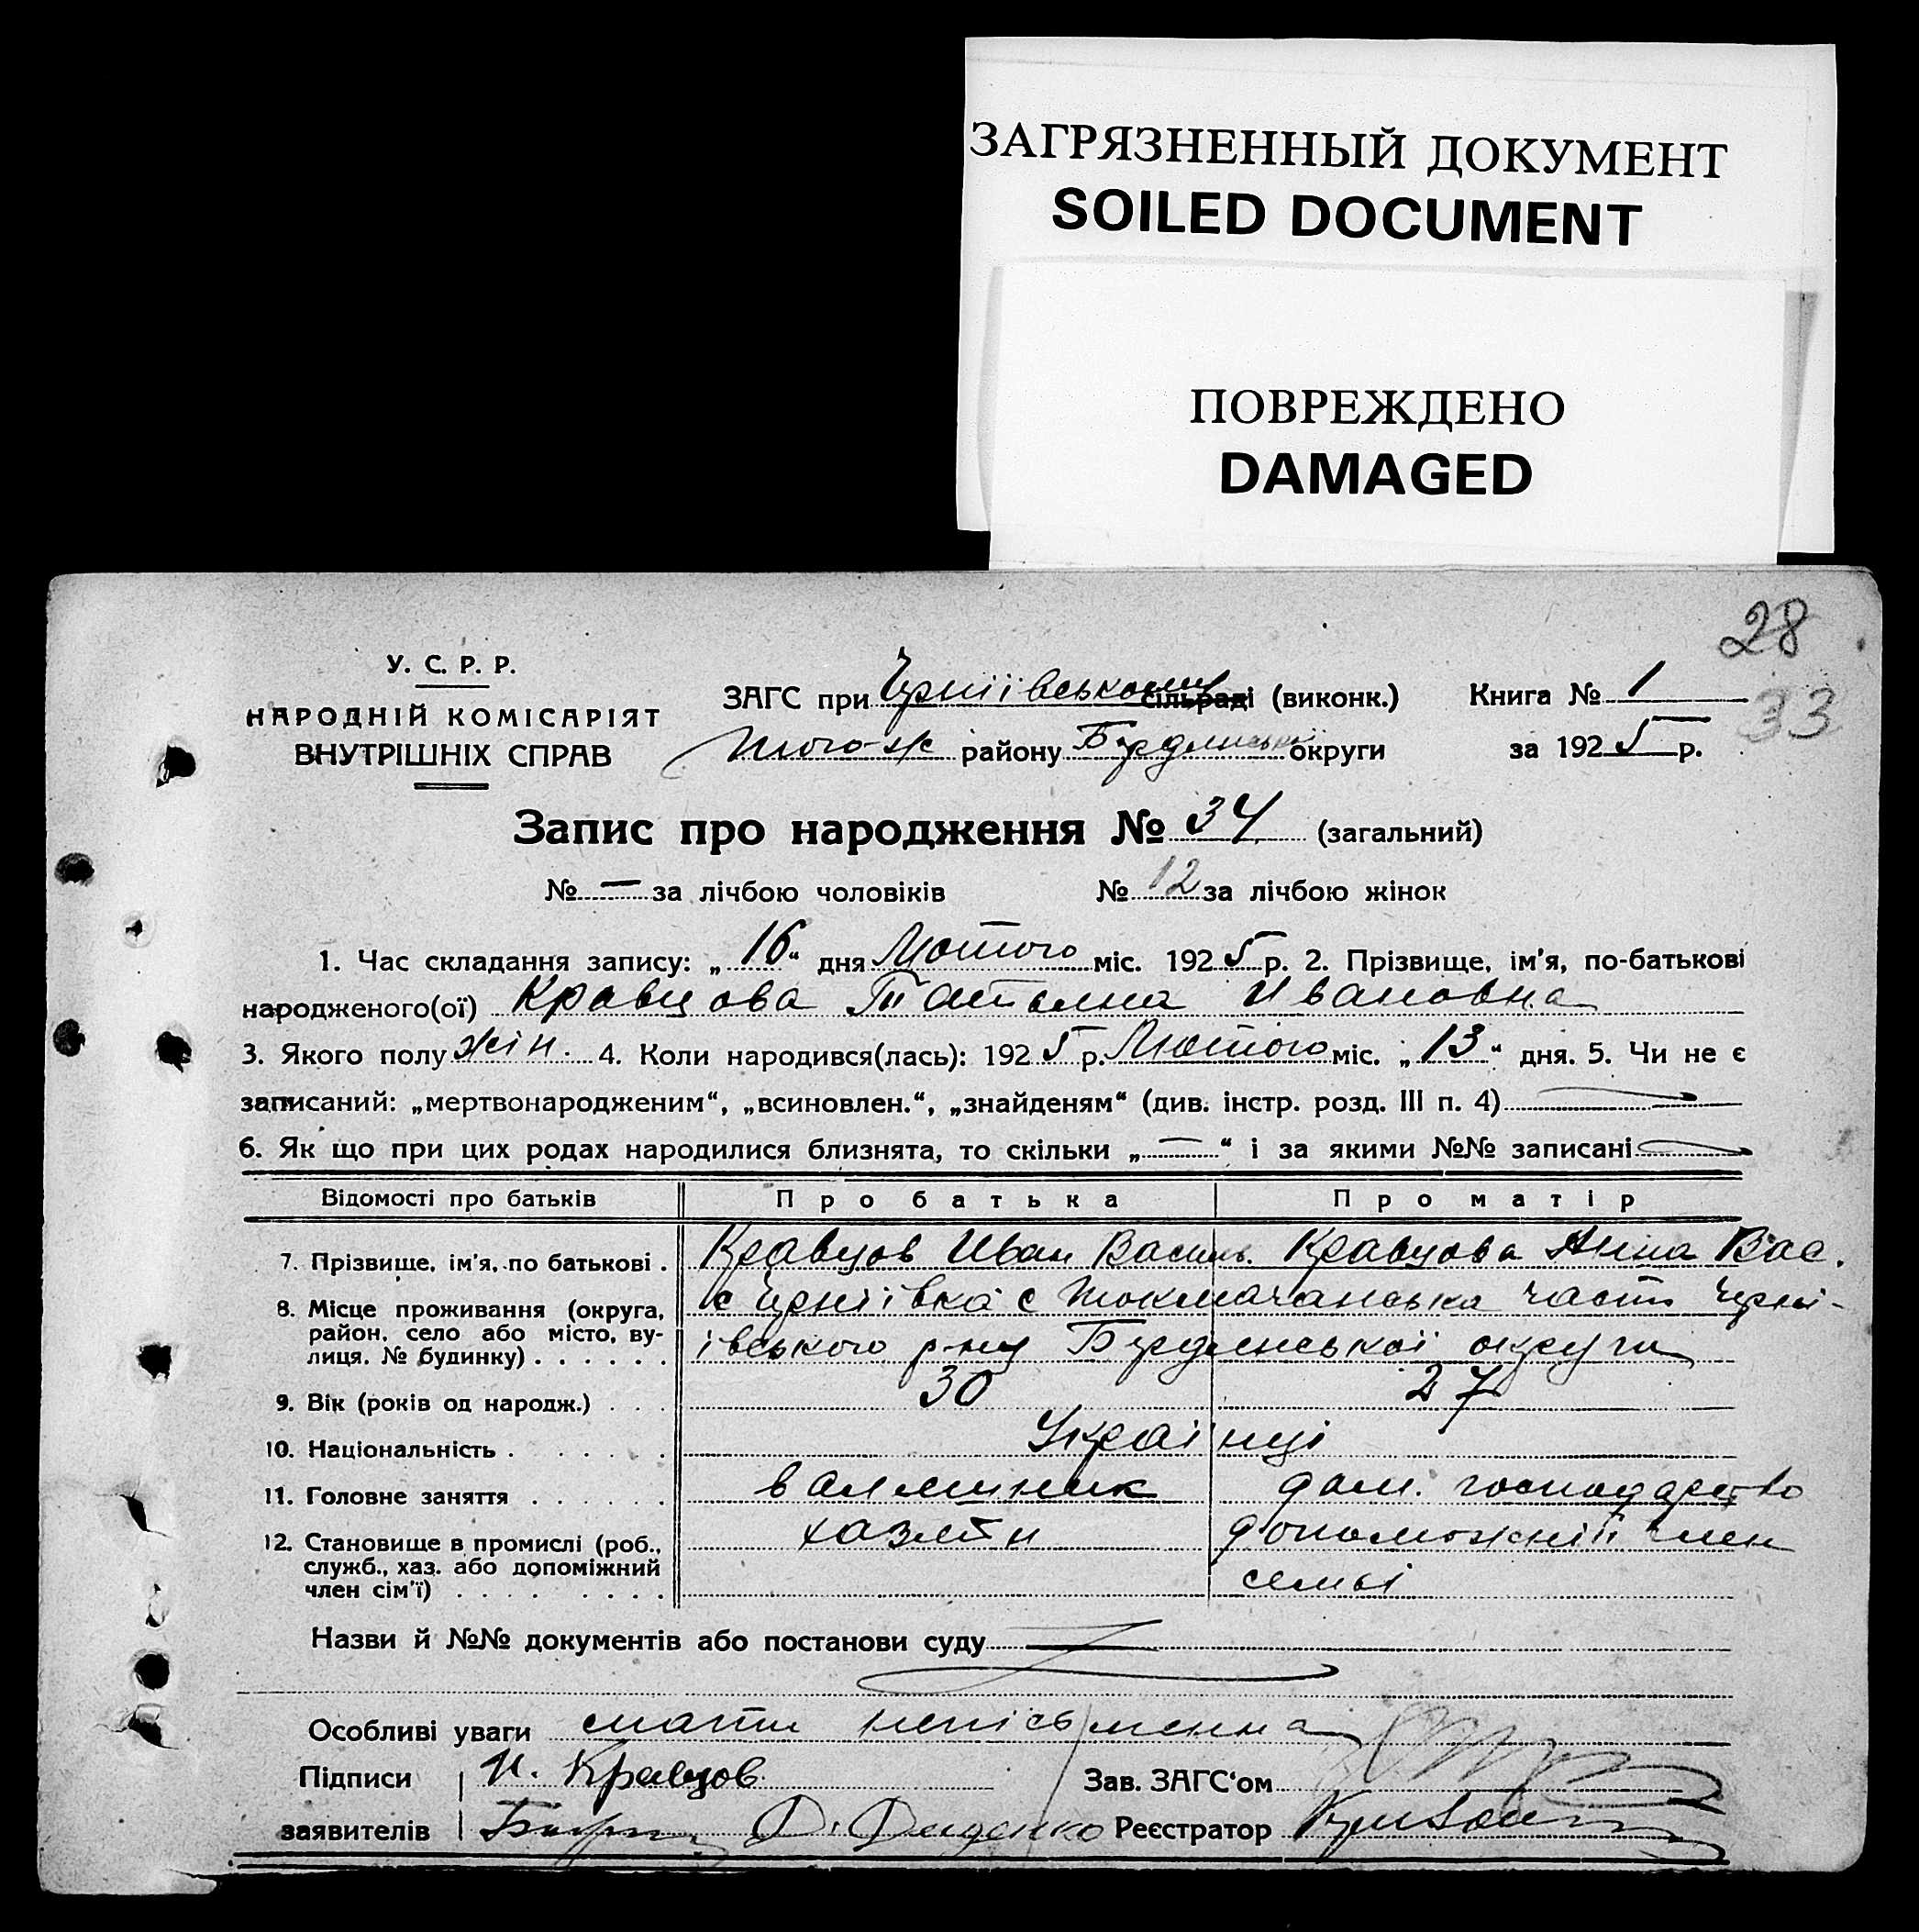 ЗАГРЯЗНЕННЫЙ ДОКУМЕНТ
SOILED DOCUMENT
ПОВРЕЖДЕНО
DAMAGED
28
33
У. С. Р. Р.
НАРОДНІЙ КОМІСАРІЯТ
ВНУТРІШНІХ СПРАВ
ЗАГС при Черніївському сільраді (виконк.) Книга № 1
того-ж району Бердянської округи за 1925 р.
Запис про народження № 34 (загальний)
№ — за лічбою чоловіків № 12 за лічбою жінок
1. Час складання запису: „16“ дня Лютого міс. 1925 р. 2. Прізвище, ім'я, по-батькові
народженого(ої) Кравцова Татьяна Ивановна
3. Якого полу жін. 4. Коли народився(лась): 1925 р. Лютого міс. „13“ дня. 5. Чи не є
записаний: „мертвонародженим“, „всиновлен.“, „знайденям“ (див. інстр. розд. III п. 4) —
6. Як що при цих родах народилися близнята, то скільки „—“ і за якими №№ записані —
Відомості про батьків Про батька Про матір
7. Прізвище, ім'я, по батькові . Кравцов Иван Василь. Кравцова Анна Вас.
8. Місце проживання (округа, с Черніївка с Токмачанська част Черні-
район, село або місто, ву-
лиця. № будинку) . . . . . . івського р-ну Бердянської округи
9. Вік (років од народж.) . . . 30 27
10. Національність . . . . . . Українці
11. Головне заняття . . . . . . дом. господарство
12. Становище в промислі (роб., хазяїн допоможній член
служб., хаз. або допоміжний
член сім'ї) . . . . . . . семьі
Назви й №№ документів або постанови суду —
Особливі уваги мати непісьменна
Підписи И. Кравцов Зав. ЗАГС'ом
заявителів Д. Диденко Реєстратор